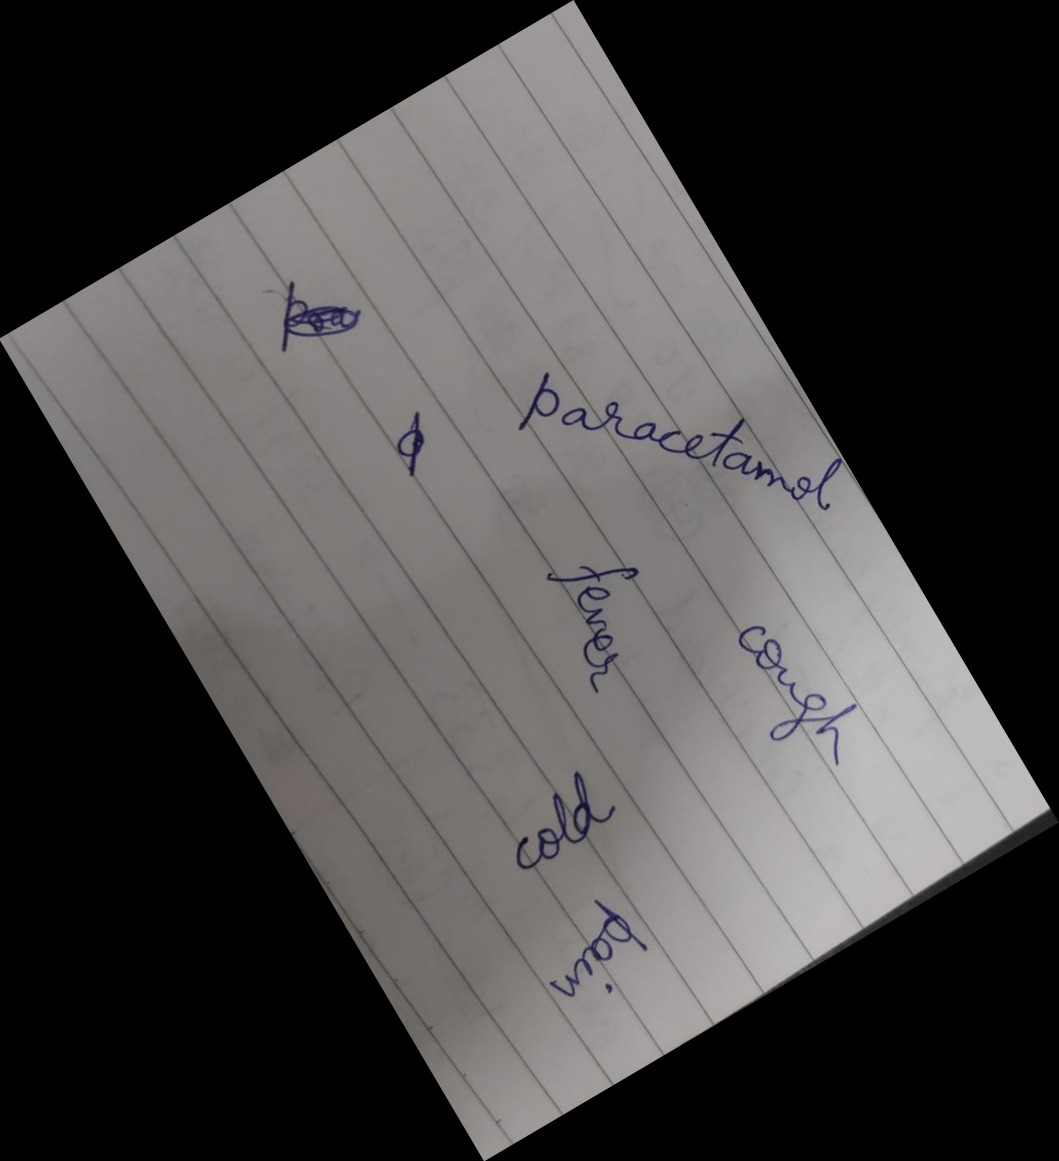 paracetamol
fever
cough
cold
pain